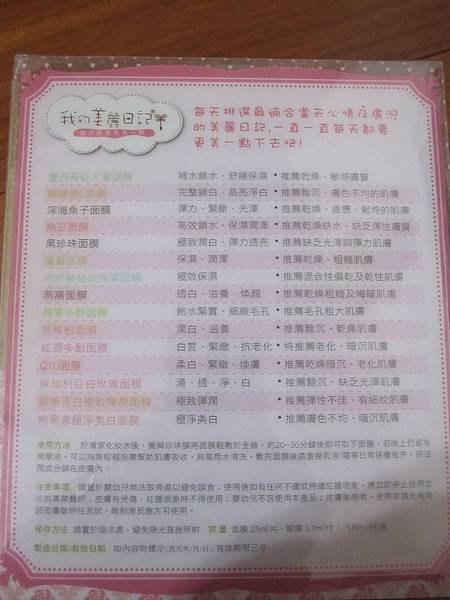 我的美麗日記
每天都要更美一點
每天挑選最適合當天心情及膚況
的美麗日記,一直一直每天都要
更美一點下去吧!
墨西哥仙人掌面膜 補水鎖水、舒緩保濕 •推薦乾燥、敏感膚質
完整鎖白、晶亮淨白 •推薦黯沉、膚色不均的肌膚
深海魚子面膜 彈力、緊緻、光澤 •推薦乾燥、疲憊、鬆垮的肌膚
納豆面膜 高效鎖水、保濕潤澤 •推薦乾燥缺水、缺乏彈性膚質
黑珍珠面膜 極致潤白、彈力透亮 •推薦缺乏光澤與彈力肌膚
蘆薈面膜 保濕、潤澤 •推薦乾燥、粗糙肌膚
玻尿酸極效保濕面膜 極效保濕 •推薦混合性偏乾及乾性肌膚
燕窩面膜 透白、滋養、煥顏 •推薦乾燥粗糙及暗黯肌膚
蘋果多酚面膜 飽水緊實、細緻毛孔 •推薦毛孔粗大肌膚
珍珠粉面膜 潤白、滋養 •推薦黯沉、乾燥肌膚
紅酒多酚面膜 白皙、緊緻、抗老化 •特推薦老化、暗沉肌膚
Q10面膜 柔白、緊緻、煥膚 •推薦乾燥暗沉、老化肌膚
保加利亞白玫瑰面膜 清、透、淨、白 •推薦黯沉、缺乏光澤肌膚
膠原蛋白極致彈潤面膜 極致彈潤 •推薦彈性不佳、有細紋肌膚
熊果素極淨美白面膜 極淨美白 •推薦膚色不均、暗沉肌膚
使用方法 於清潔化妝水後,撕掉珍珠膜將面膜輕敷於全臉,約20~30分鐘後即可取下面膜,若臉上仍留有
精華液,可以指腹輕輕按摩幫助肌膚吸收,無需用水清洗,敷完面膜後請重複乳液/霜等日常保養程序,將滋
潤成分鎖在皮膚內。
注意事項 請置於嬰幼兒無法取得處以避免誤食;使用後如有任何不適或持續紅腫現象,應立即停止使用並
洽詢專業醫師;皮膚有受傷、紅腫現象時不得使用;嬰幼兒不宜使用本產品;皮膚敏感者,使用前請先做局
部皮膚敏感性測試,無刺激反應方可使用。
保存方法 請置於陰涼處,避免陽光直接照射 容量 面膜 23ml/片,眼膜 3.3ml/對;
製造日期/有效日期 如內容物標示(西元年/月/日)/有效期限三年